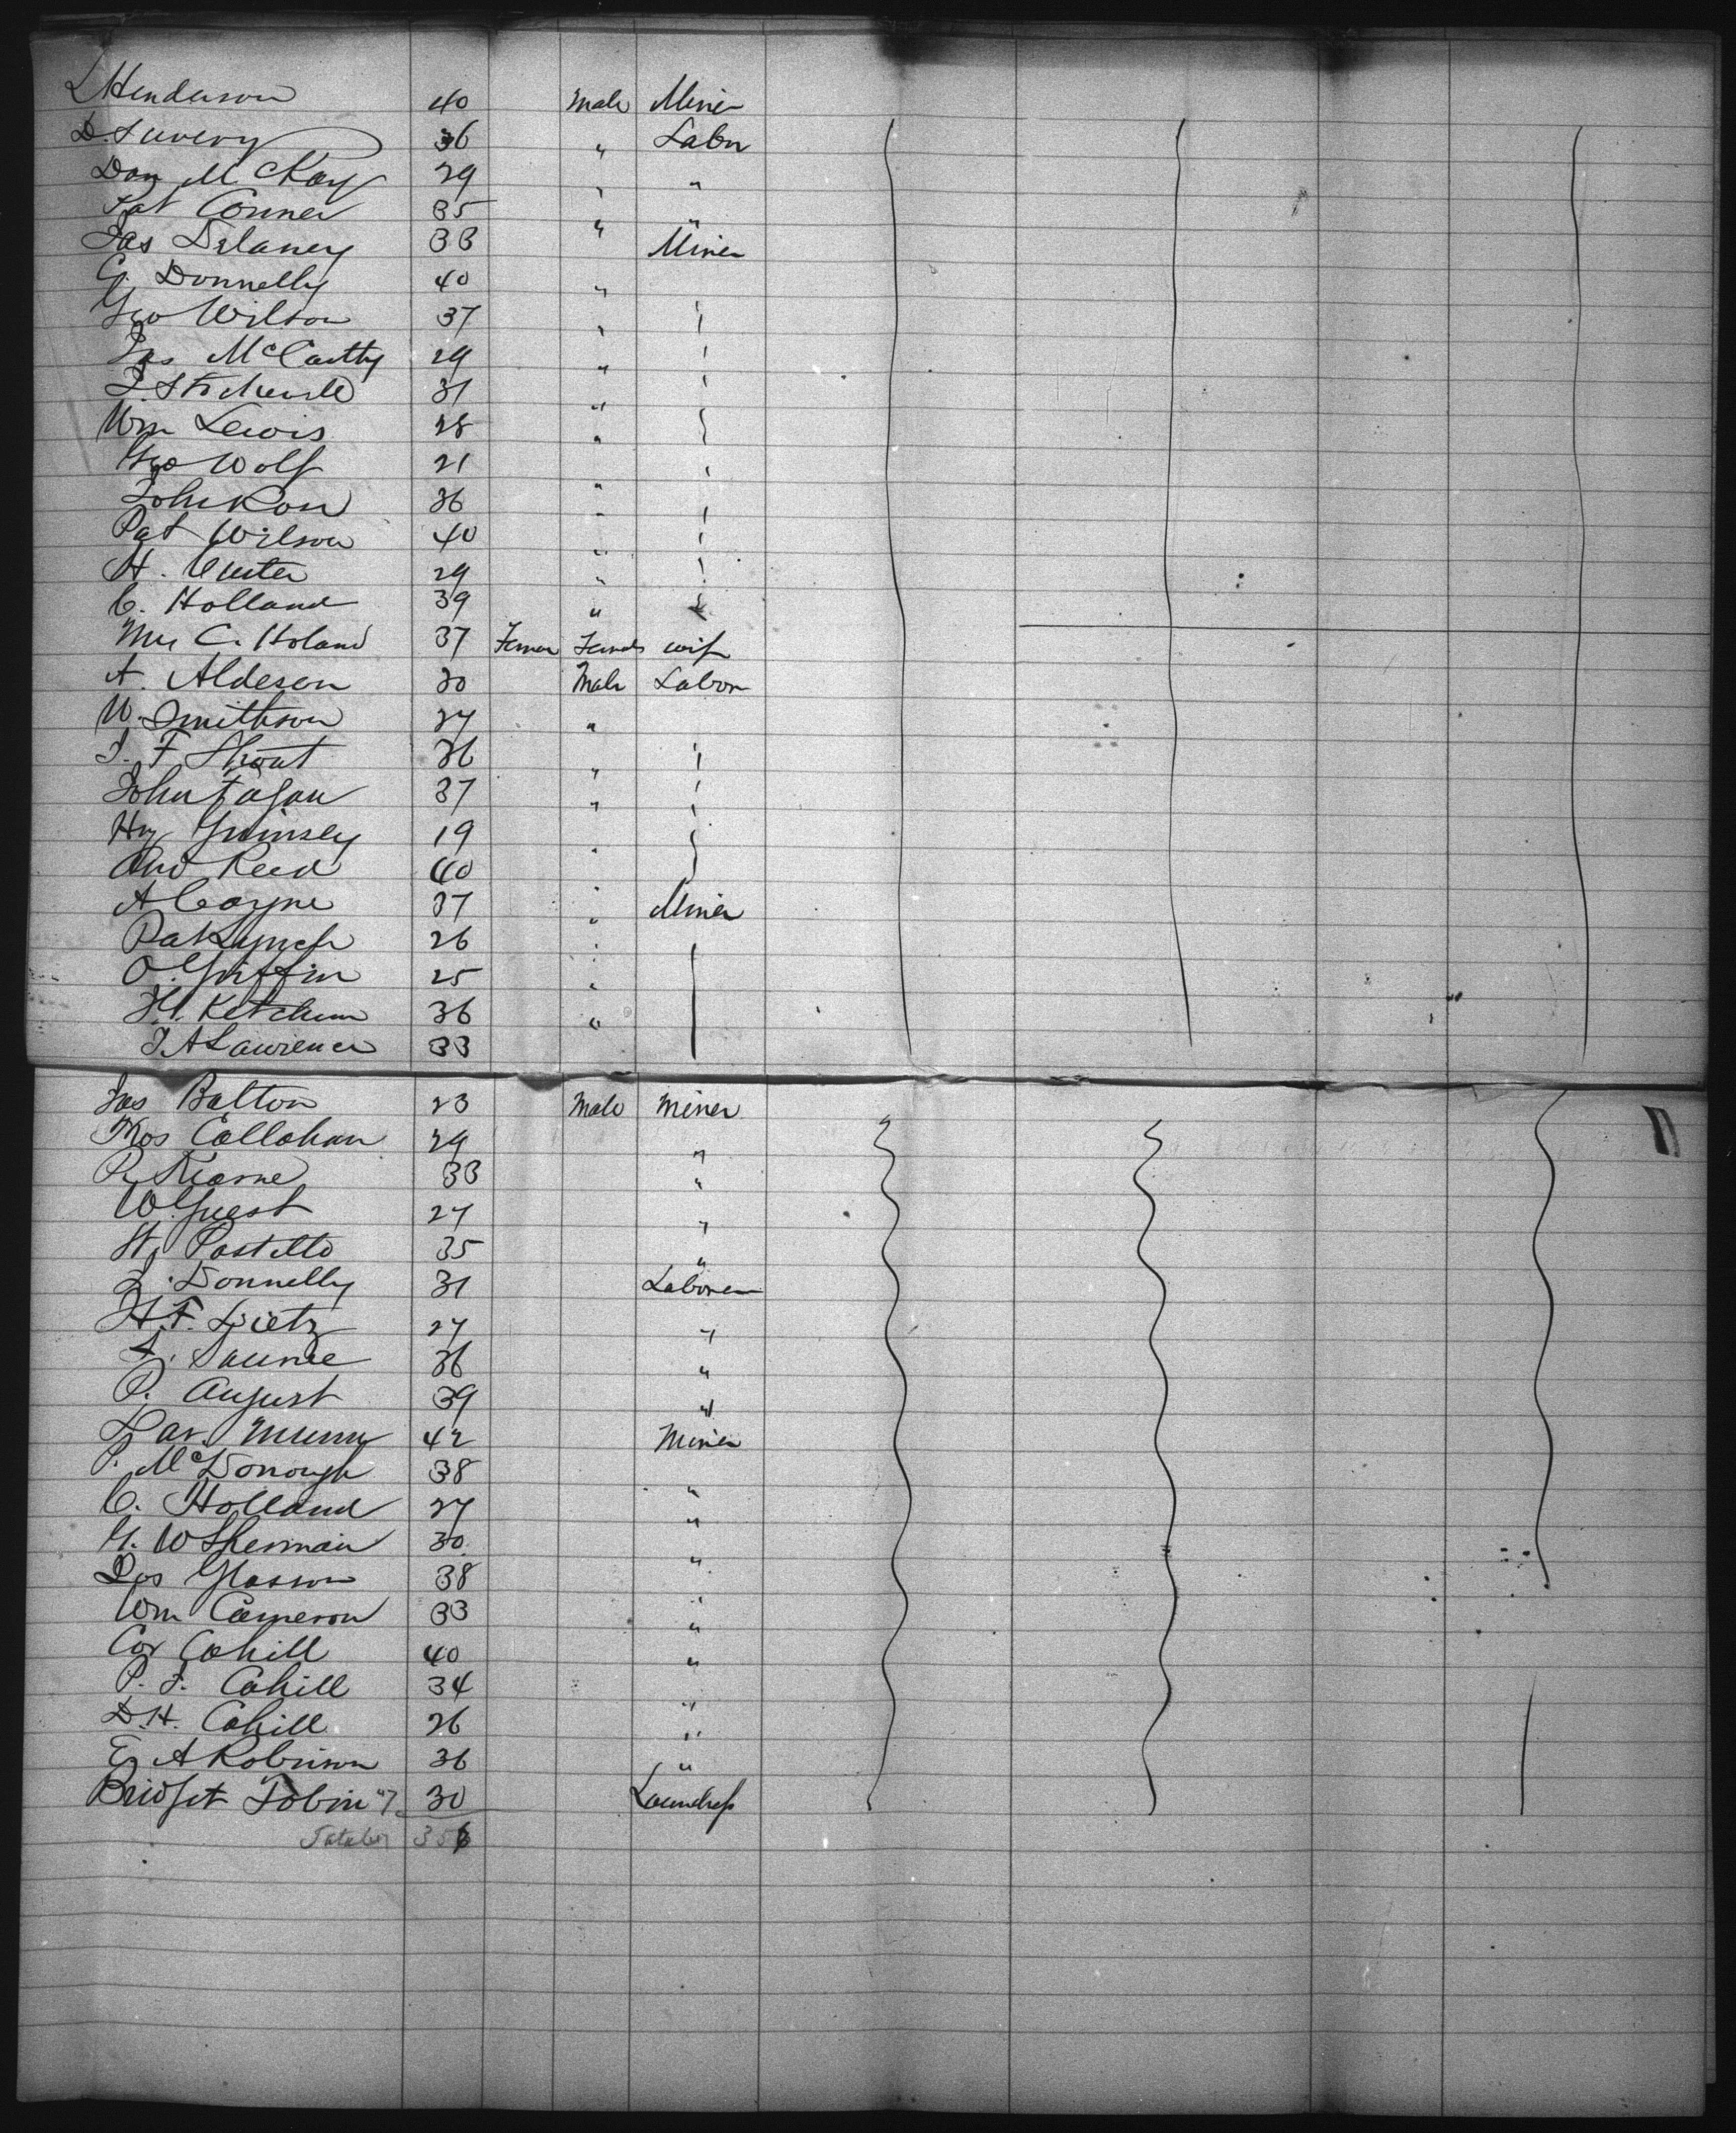 L Henderson 40 Male Miner
D. Savery 36 " Labor
Dan McKay 29 " "
Pat Conner 35 " "
Jas Delaney 33 " Miner
G. Donnelly 40 "
Geo Wilson 37 "
Jas McCarthy 29 "
31 "
Wm Lewis 28 "
Geo Wolf 21 "
John 36 "
Pat Wilson 40 "
H. 29 "
C. Holland 39 "
Mrs C. Holand 37 Female wife
A. Aldeson 30 Male Labor
W. Smithson 27 "
J. F. 36 "
John Fagan 37 "
Hy Grimsey 19 "
And Reed 40 "
A Coyne 37 " Miner
Pat Lynch 26 "
O. Griffin 25 "
H. Ketchum 36 "
J A Lawrence 33
Jas Balton 23 Male Miner
Thos Callahan 29 "
P. 33 "
W Guest 27 "
Hy Postello 35 "
J. Donnelly 31 Laborer
H. F. Dietz 27 "
36 "
P. August 39 "
42 Miner
P. McDonough 38 "
C. Holland 27 "
G. W Sherman 30 "
Jos Glasson 38 "
Wm Cameron 33 "
Cor Cahill 40 "
P. J. Cahill 34 "
D. H. Cahill 26 "
E. A Robinson 36 "
Bridget Tobin 30 Laundress